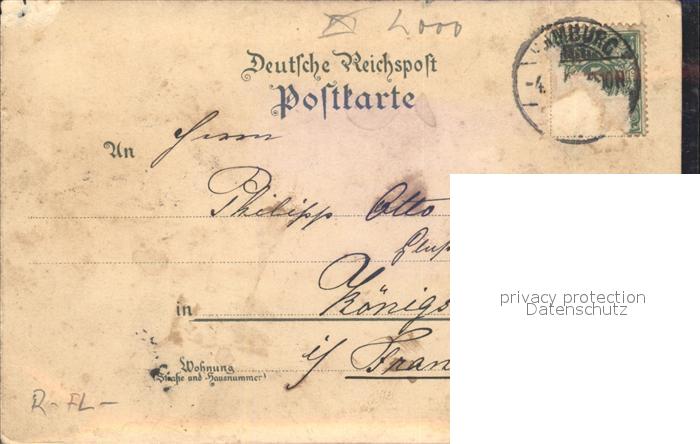 2000
HAMBURG
-4.
Deutsche Reichspost
Postkarte
An Herrn
Philipp Otto
in Königs
i/ Fran
Wohnung
(Straße und Hausnummer)
R-FL-
privacy protection
Datenschutz